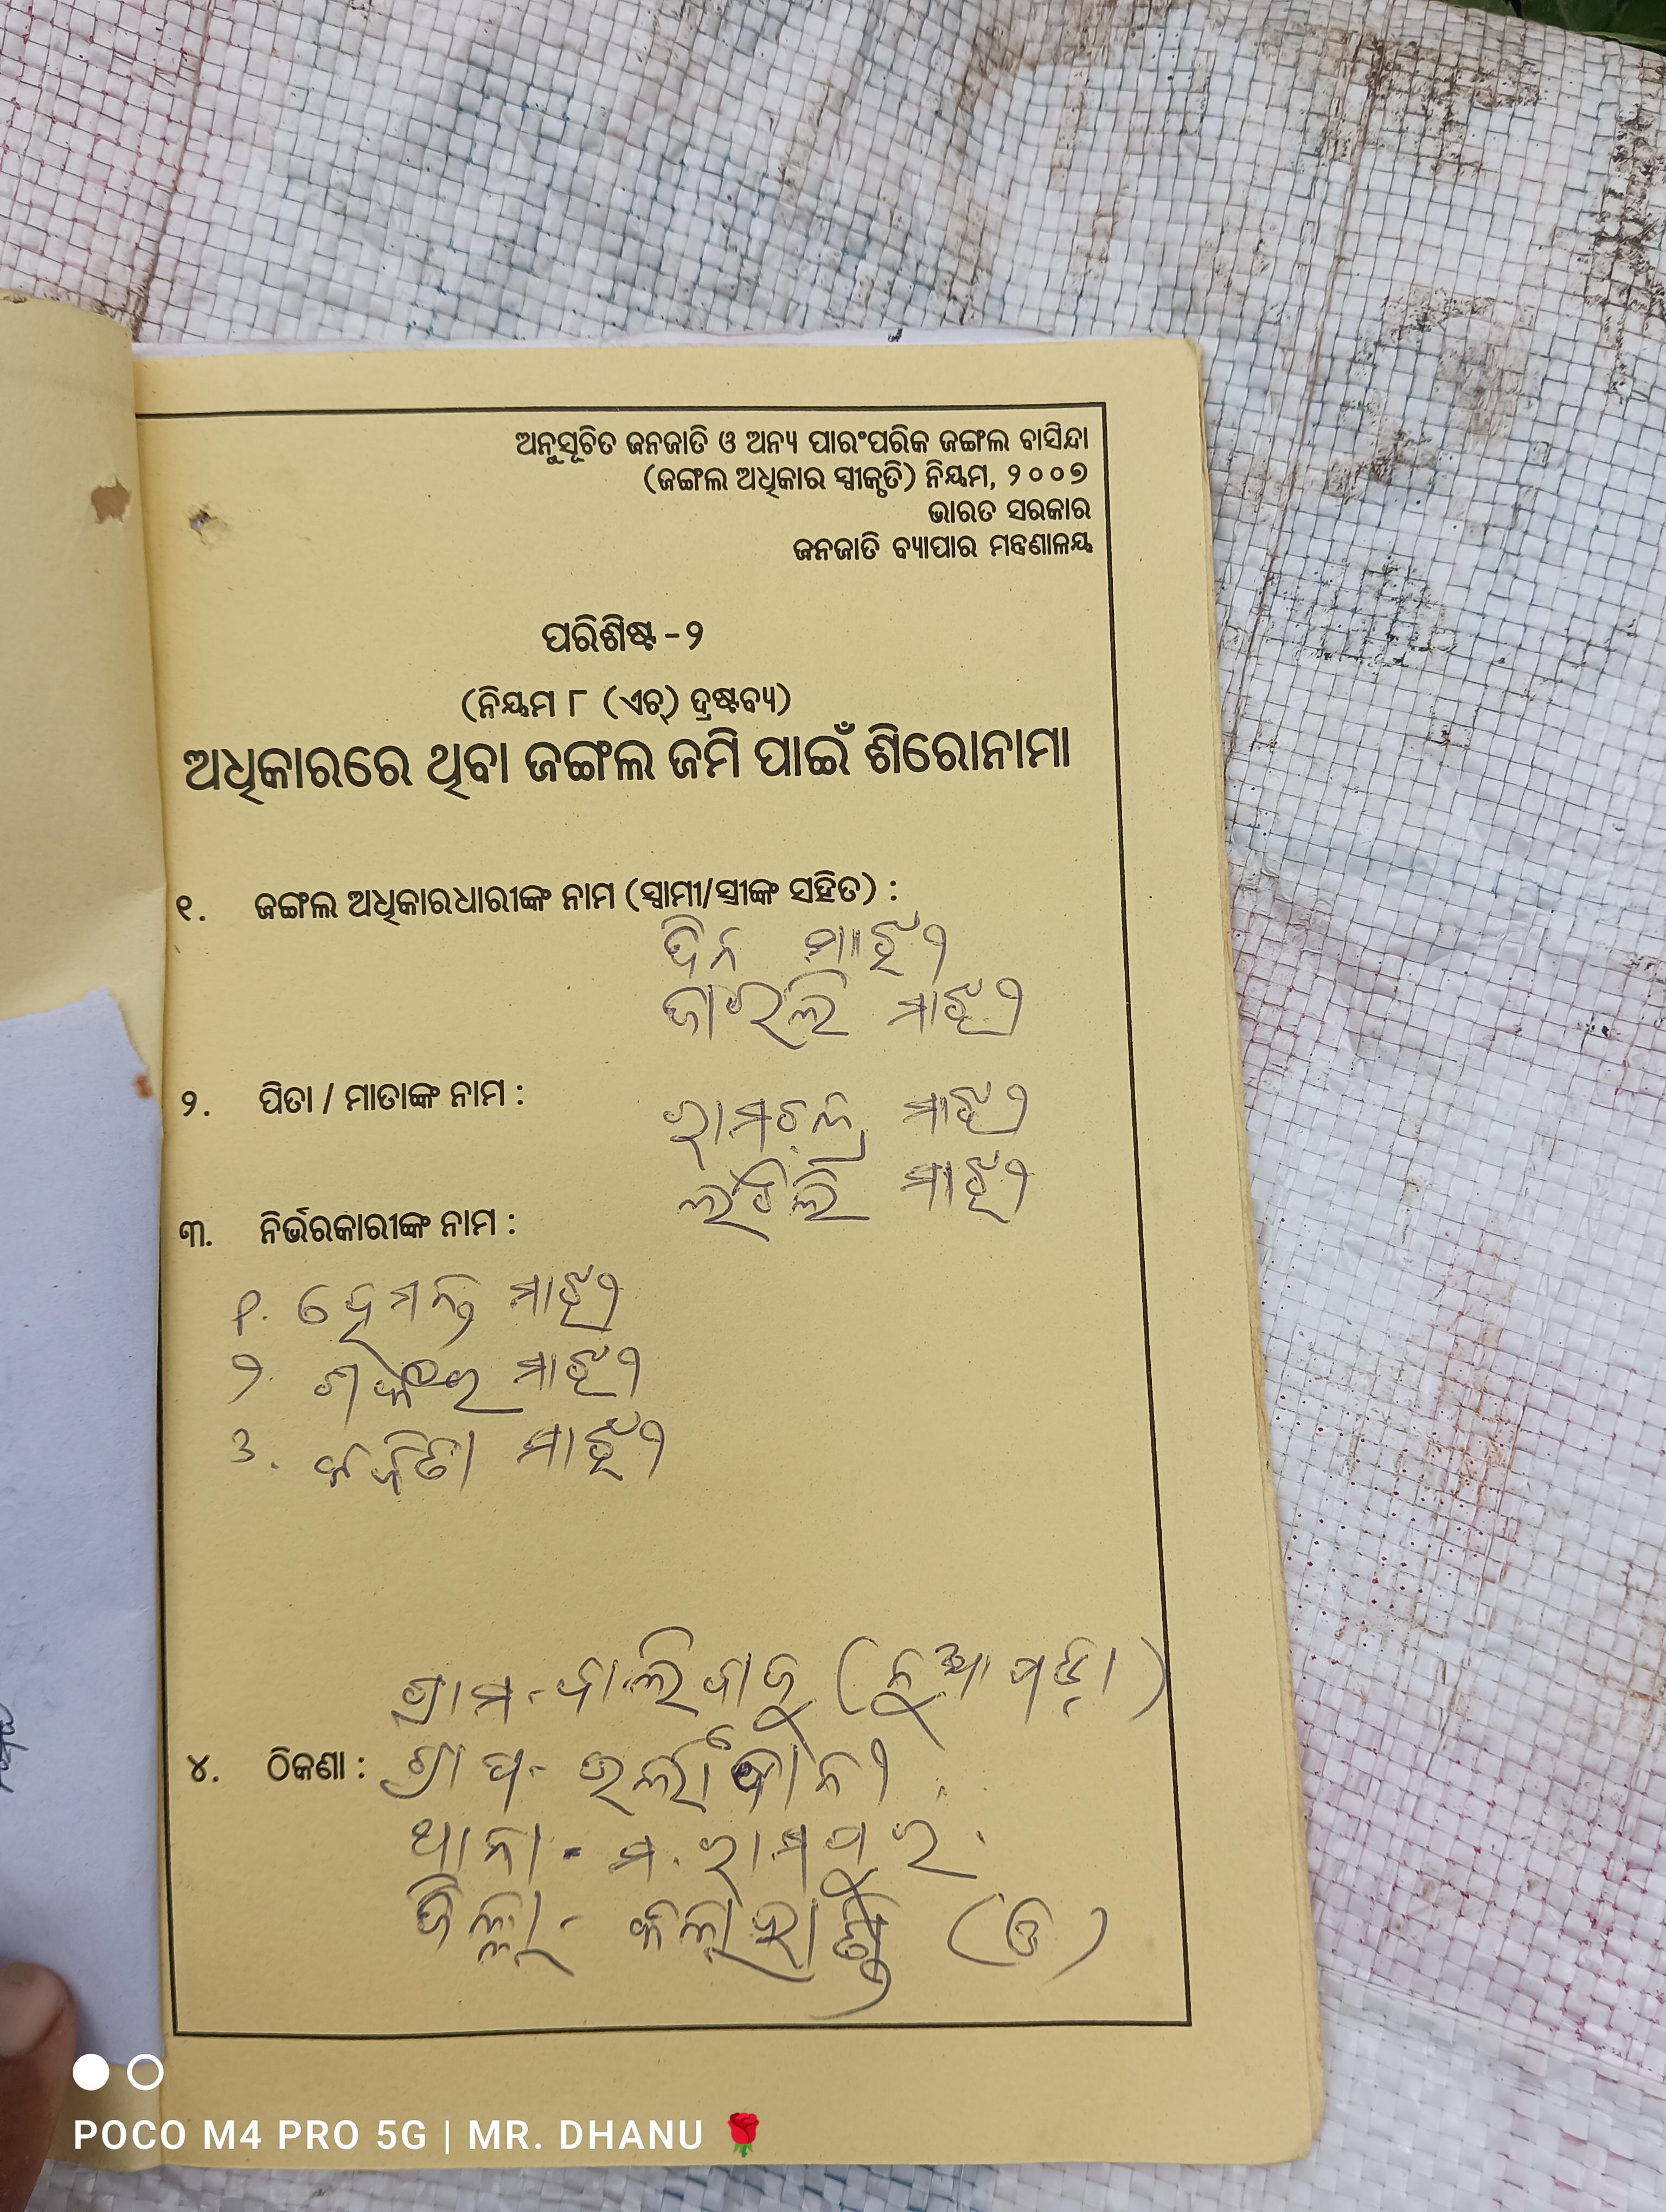 ଅନୁସୂଚିତ ଜନଜାତି ଓ ଅନ୍ୟ ପାରଂପରିକ ଜଙ୍ଗଲ ବାସିନ୍ଦା
(ଜଙ୍ଗଲ ଅଧିକାର ସ୍ୱୀକୃତି) ନିୟମ, ୨୦୦୭
ଭାରତ ସରକାର
ଜନଜାତି ବ୍ୟାପାର ମନ୍ତ୍ରଣାଳୟ
ପରିଶିଷ୍ଟ -୨
(ନିୟମ ୮ (ଏଚ୍) ଦ୍ରଷ୍ଟବ୍ୟ)
ଅଧିକାରରେ ଥିବା ଜଙ୍ଗଲ ଜମି ପାଇଁ ଶିରୋନାମା
୧. ଜଙ୍ଗଲ ଅଧିକାରଧାରୀଙ୍କ ନାମ (ସ୍ୱାମୀ/ସ୍ତ୍ରୀଙ୍କ ସହିତ) :
ଦିନ ମାଝୀ
ମାଝୀ
୨. ପିତା / ମାତାଙ୍କ ନାମ :
ରାମଚନ୍ଦ୍ର ମାଝୀ
ମାଝୀ
୩. ନିର୍ଭରକାରୀଙ୍କ ନାମ :
୧. ହେମନ୍ତ ମାଝୀ
୨. ମାଝୀ
୩. କବିତା ମାଝୀ
ଗ୍ରାମ- (ନୂଆପଡ଼ା)
୪. ଠିକଣା : ଗ୍ରା ପ-
ଥାନା - ମ. ରାମପୁର
ଜିଲ୍ଲା- କଳାହାଣ୍ଡି (ଓ)
POCO M4 PRO 5G | MR. DHANU 🌹